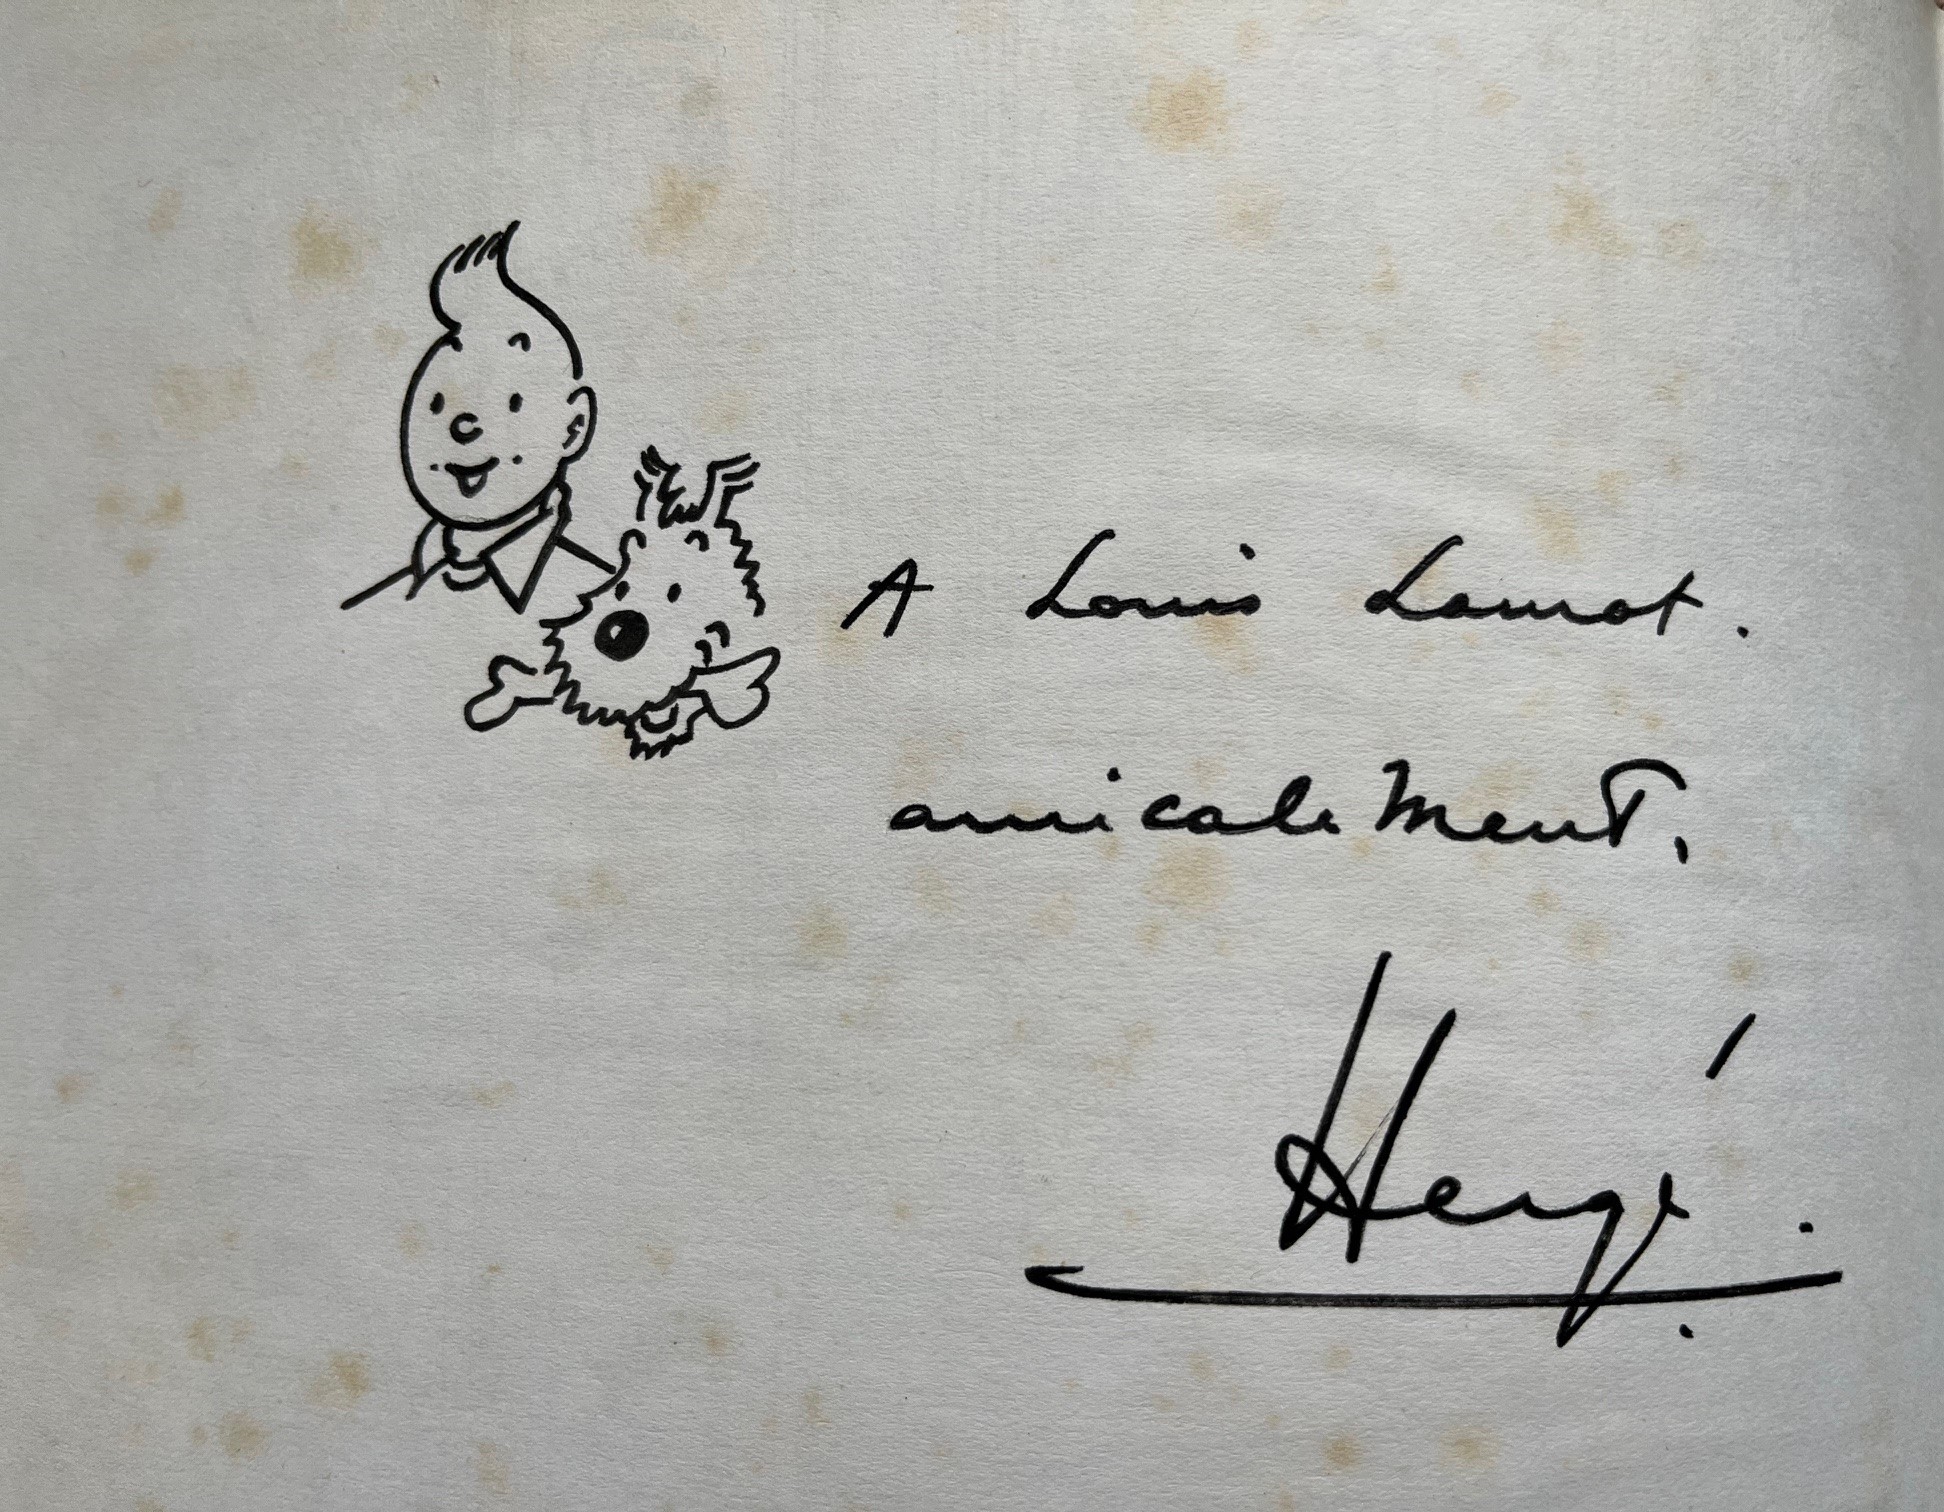 A Louis Laurot.
amicalement,
Hergé